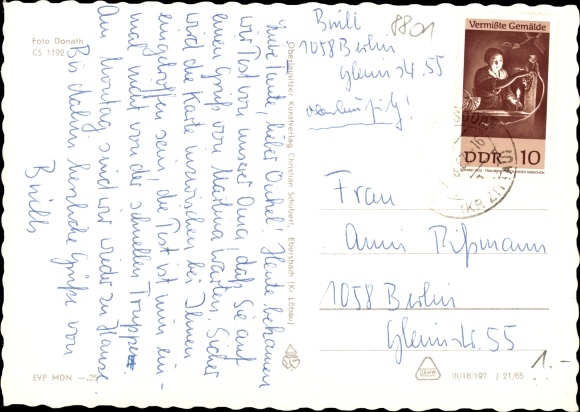 Foto Donath
CS 1192
Liebe Leute, lieber Onkel! Heute bekamen
wir Post von unserer Oma, daß Sie auf
einen Gruß von Martina warten. Sicher
wird die Karte inzwischen bei Ihnen
eingetroffen sein, die Post ist nun ein-
mal nicht von der schnellen Truppe.
Am Montag sind wir wieder zu Hause.
Bis dahin herzliche Grüße von
Brills
EVP MDN —.25
Oberlausitzer Kunstverlag Christian Schubert, Ebersbach (Kr. Löbau)
Brill
1058 Berlin
Gleimstr. 55
8801
Vermißte Gemälde
DDR 10
(KR. ZITTAU)
Frau
Anni Rißmann
1058 Berlin
Gleimstr. 55
1.-
III/18/197 J 21/65